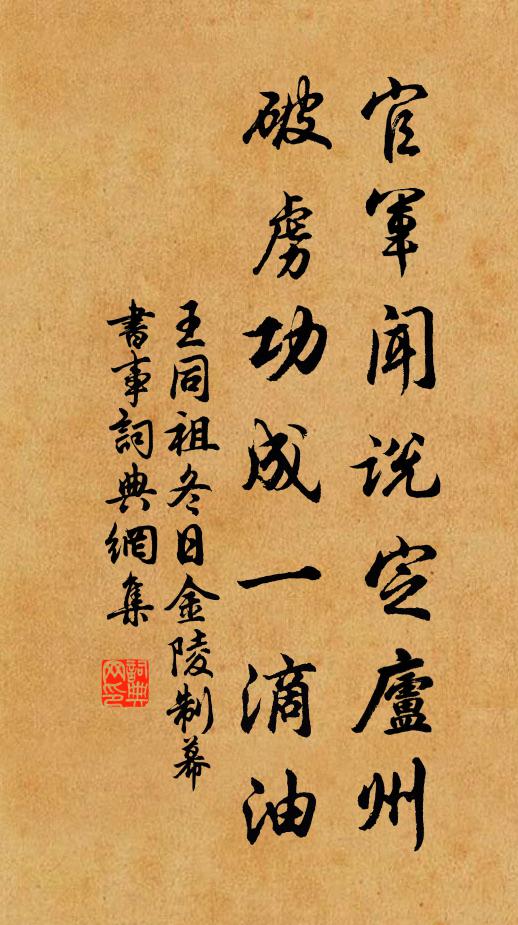 官軍聞说定廬州
破虜功成一滴油
王同祖冬日金陵制幕
書事詞典網集
詞典网印